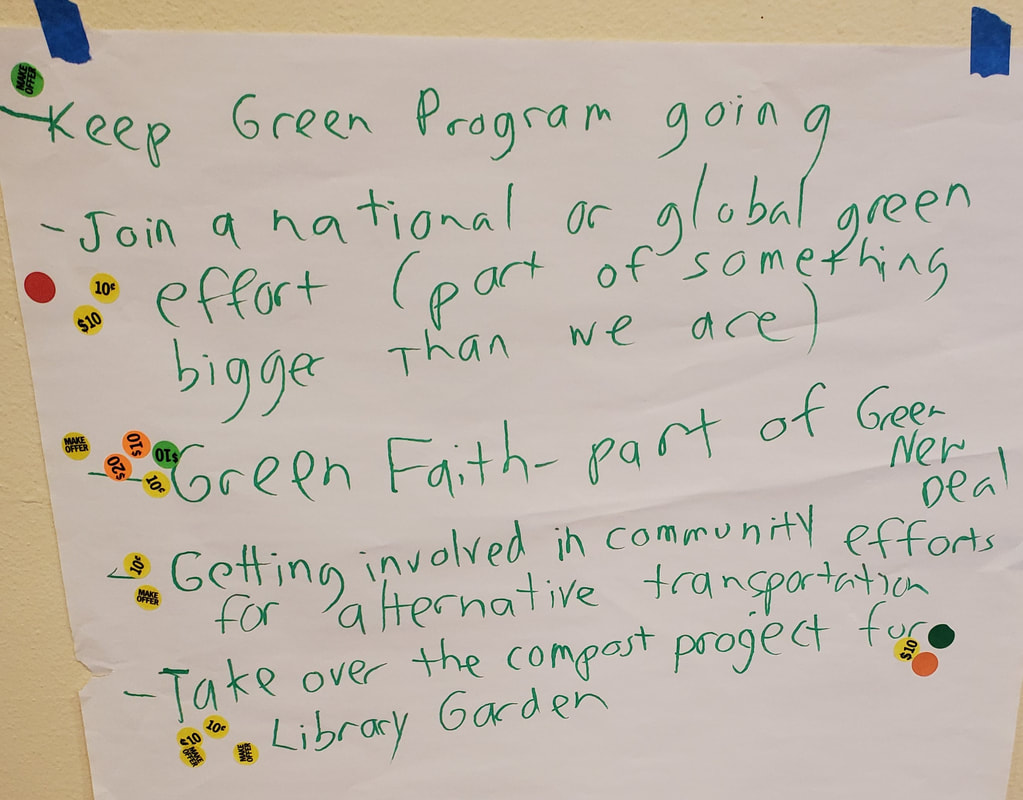 MAKE OFFER
- Keep Green Program going
- Join a national or global green
10¢
effort (part of something
$10
bigger Than we are)
MAKE OFFER
$10
$20
$10
10¢
- Green Faith - part of Green
New
Deal
10¢
- Getting involved in community efforts
MAKE OFFER
for alternative transportation
- Take over the compost progect for
$10
Library Garden
10¢
$10
MAKE OFFER
MAKE OFFER